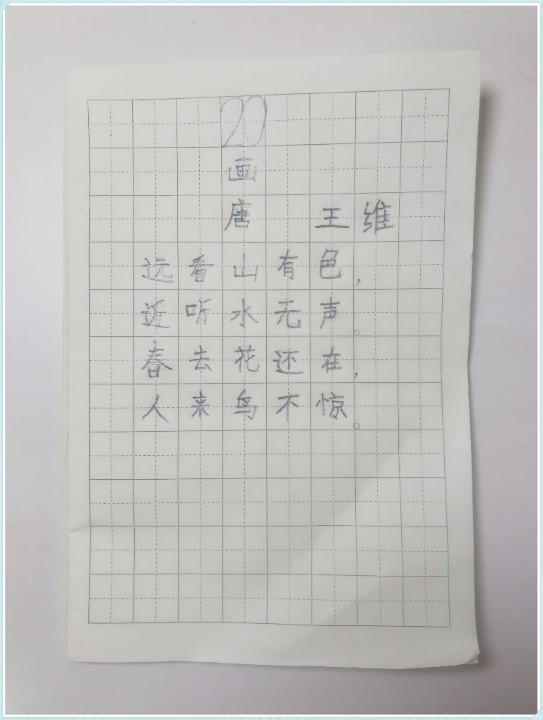 20
画
唐 王维
远看山有色，
近听水无声。
春去花还在，
人来鸟不惊。